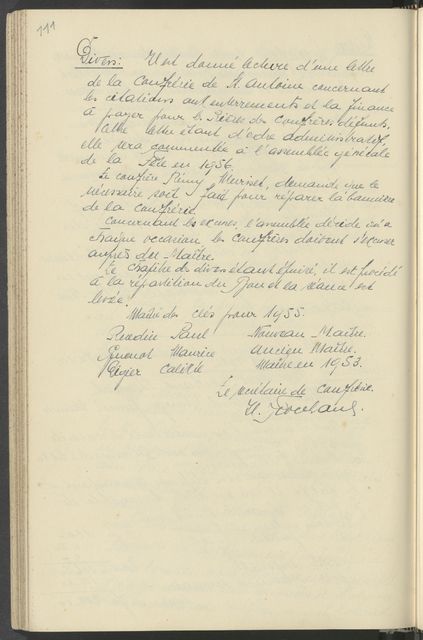 111
Divers: Il est donné lecture d'une lettre
de la Confrérie de St. Antoine concernant
les citations aux enterrements et la finance
à payer pour les Messes des confrères défunts.
Cette lettre étant d'odre administratif,
elle sera commentée à l'assemblée générale
de la Fête en 1956.
Le confrère Rémy Meriset, demande que le
nécessaire soit fait pour réparer la bannière
de la confrérie.
Concernant les excuses, l'assemblée décide qu'à
chaque occasion les confrères doivent s'excuser
auprès du Maître.
Le chapitre des divers étant épuisé, il est procédé
à la répartition du Jon et la séance est
levée.
Maître des clés pour 1955.
Paul Nouveau Maître.
Maurice Ancien Maître.
Calixte Maître en 1953.
Le secrétaire de confrérie.